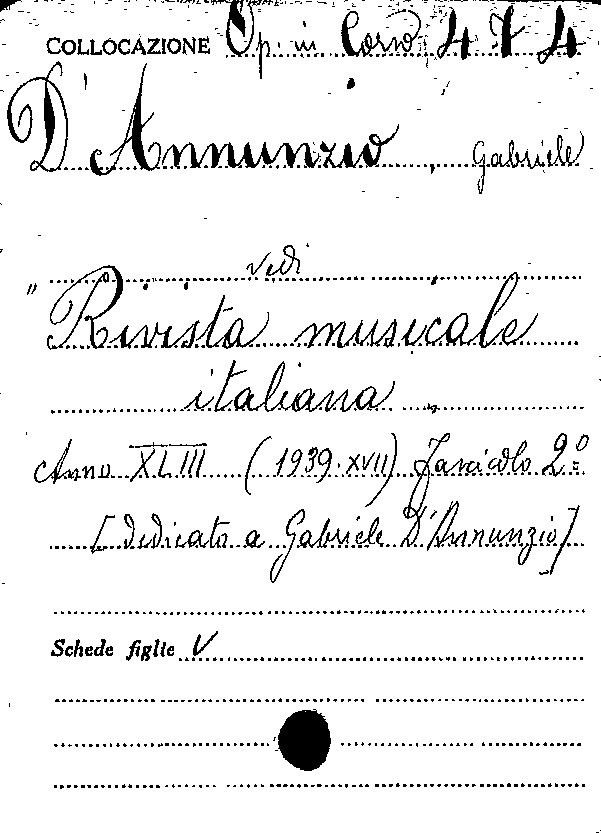 COLLOCAZIONE Op. in Corso 474
D'Annunzio, Gabriele
vedi
"Rivista musicale
italiana"
Anno XLIII (1939·XVII) Fascicolo 2º
[dedicato a Gabriele D'Annunzio]
Schede figlie V